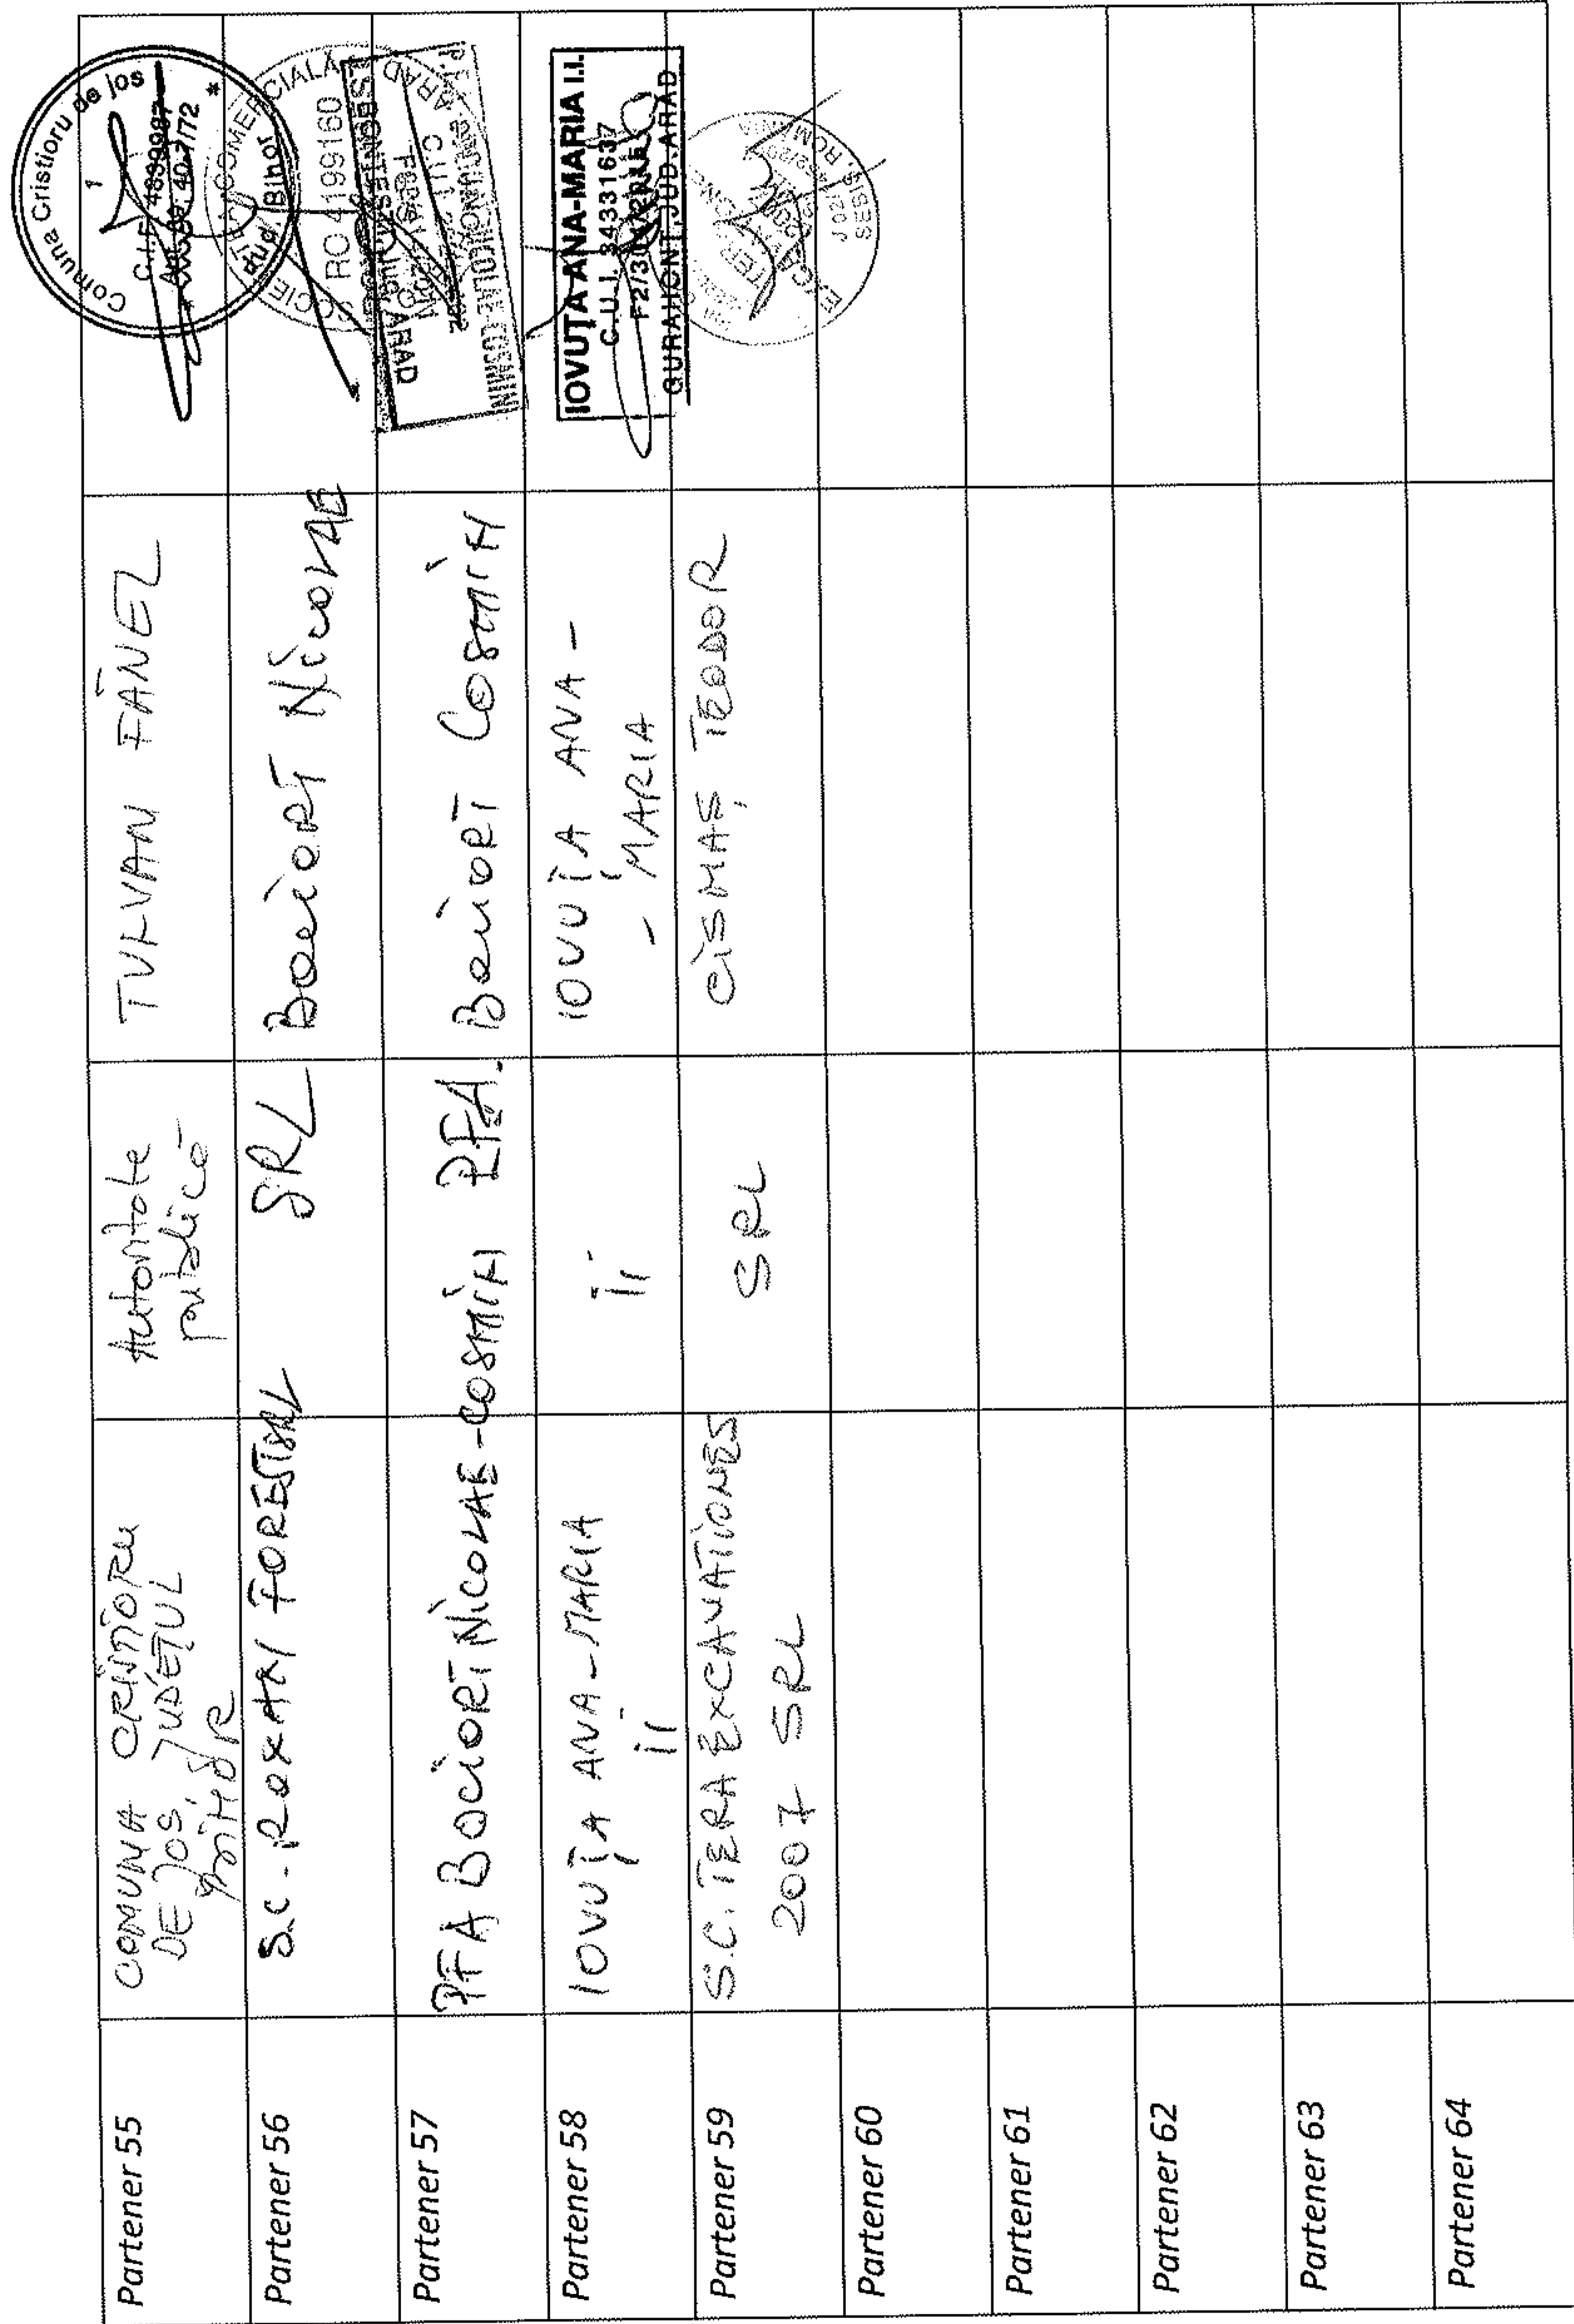 Partener 55
COMUNA CRIȘTIORU
DE JOS, JUDEȚUL
BIHOR
Autoritate
publică
TULVAN FĂNEL
Comuna Cristioru de jos
1
Jud. Bihor
Partener 56
S.C. ROXANY FORESTAL
SRL
Bociort Nicolae
COMERCIALĂ
RO 4199160
ARAD
Partener 57
PFA BOCIORT NICOLAE-COSMIN
PFA.
Bociort COSMIN
ARAD
Partener 58
IOVUȚA ANA-MARIA
ii
ii
IOVUȚA ANA-
- MARIA
IOVUȚA ANA-MARIA I.I.
C.U.I. 34331637
GURAHONT, JUD. ARAD
Partener 59
S.C. TERA EXCAVATIONES
2007 SRL
SRL
CISMAȘ TEODOR
SEBIS, ROMÂNIA
Partener 60
Partener 61
Partener 62
Partener 63
Partener 64